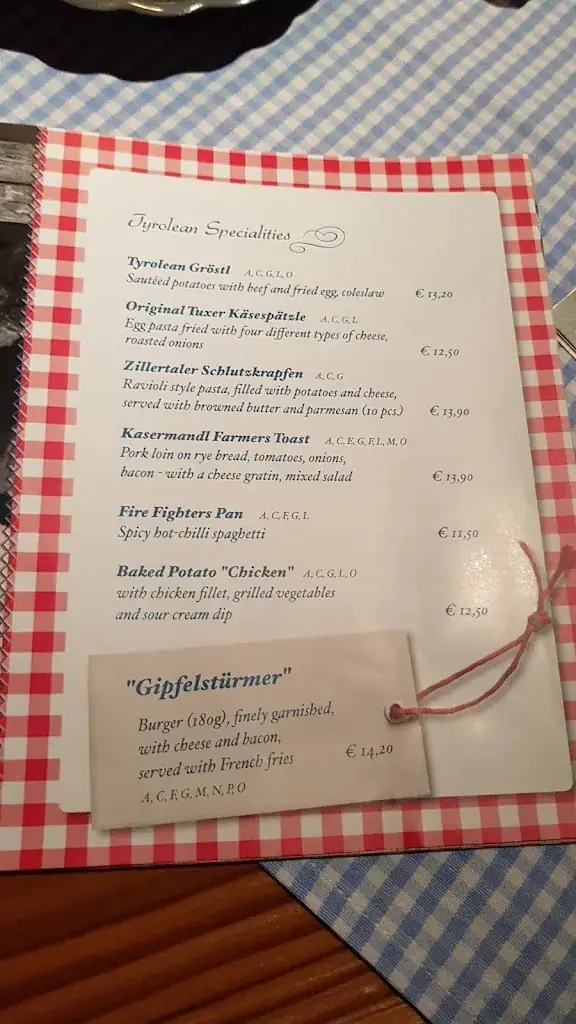 Tyrolean Specialities
Tyrolean Gröstl A, C, G, L, O
Sautéed potatoes with beef and fried egg, coleslaw € 13,20
Original Tuxer Käsespätzle A, C, G, L
Egg pasta fried with four different types of cheese,
roasted onions € 12,50
Zillertaler Schlutzkrapfen A, C, G
Ravioli style pasta, filled with potatoes and cheese,
served with browned butter and parmesan (10 pcs.) € 13,90
Kasermandl Farmers Toast A, C, E, G, F, L, M, O
Pork loin on rye bread, tomatoes, onions,
bacon - with a cheese gratin, mixed salad € 13,90
Fire Fighters Pan A, C, F, G, L
Spicy hot-chilli spaghetti € 11,50
Baked Potato "Chicken" A, C, G, L, O
with chicken fillet, grilled vegetables
and sour cream dip € 12,50
"Gipfelstürmer"
Burger (180g), finely garnished,
with cheese and bacon,
served with French fries € 14,20
A, C, F, G, M, N, P, O